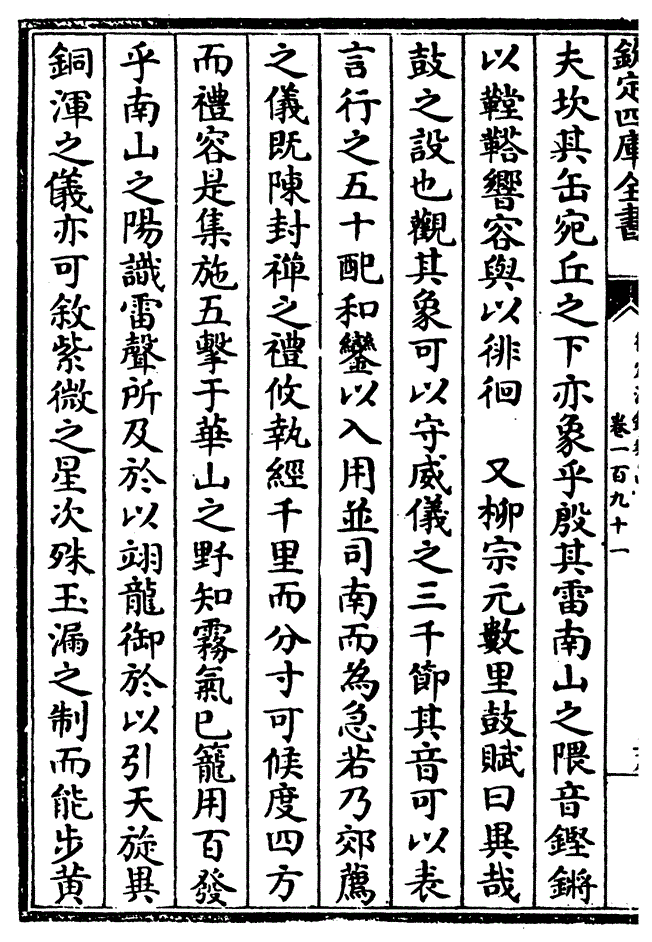 欽定四庫全書
卷一百九十一
夫坎其缶宛丘之下亦象乎殷其雷南山之隈音鏗鏘
以鞺鞳響容與以徘徊　又柳宗元數里鼓賦曰異哉
鼓之設也觀其象可以守威儀之三千節其音可以表
言行之五十配和鑾以入用並司南而為急若乃郊薦
之儀既陳封禪之禮攸執經千里而分寸可候度四方
而禮容是集施五擊于華山之野知霧氣已籠用百發
乎南山之陽識雷聲所及於以翊龍御於以引天旋異
銅渾之儀亦可敘紫微之星次殊玉漏之制而能步黃